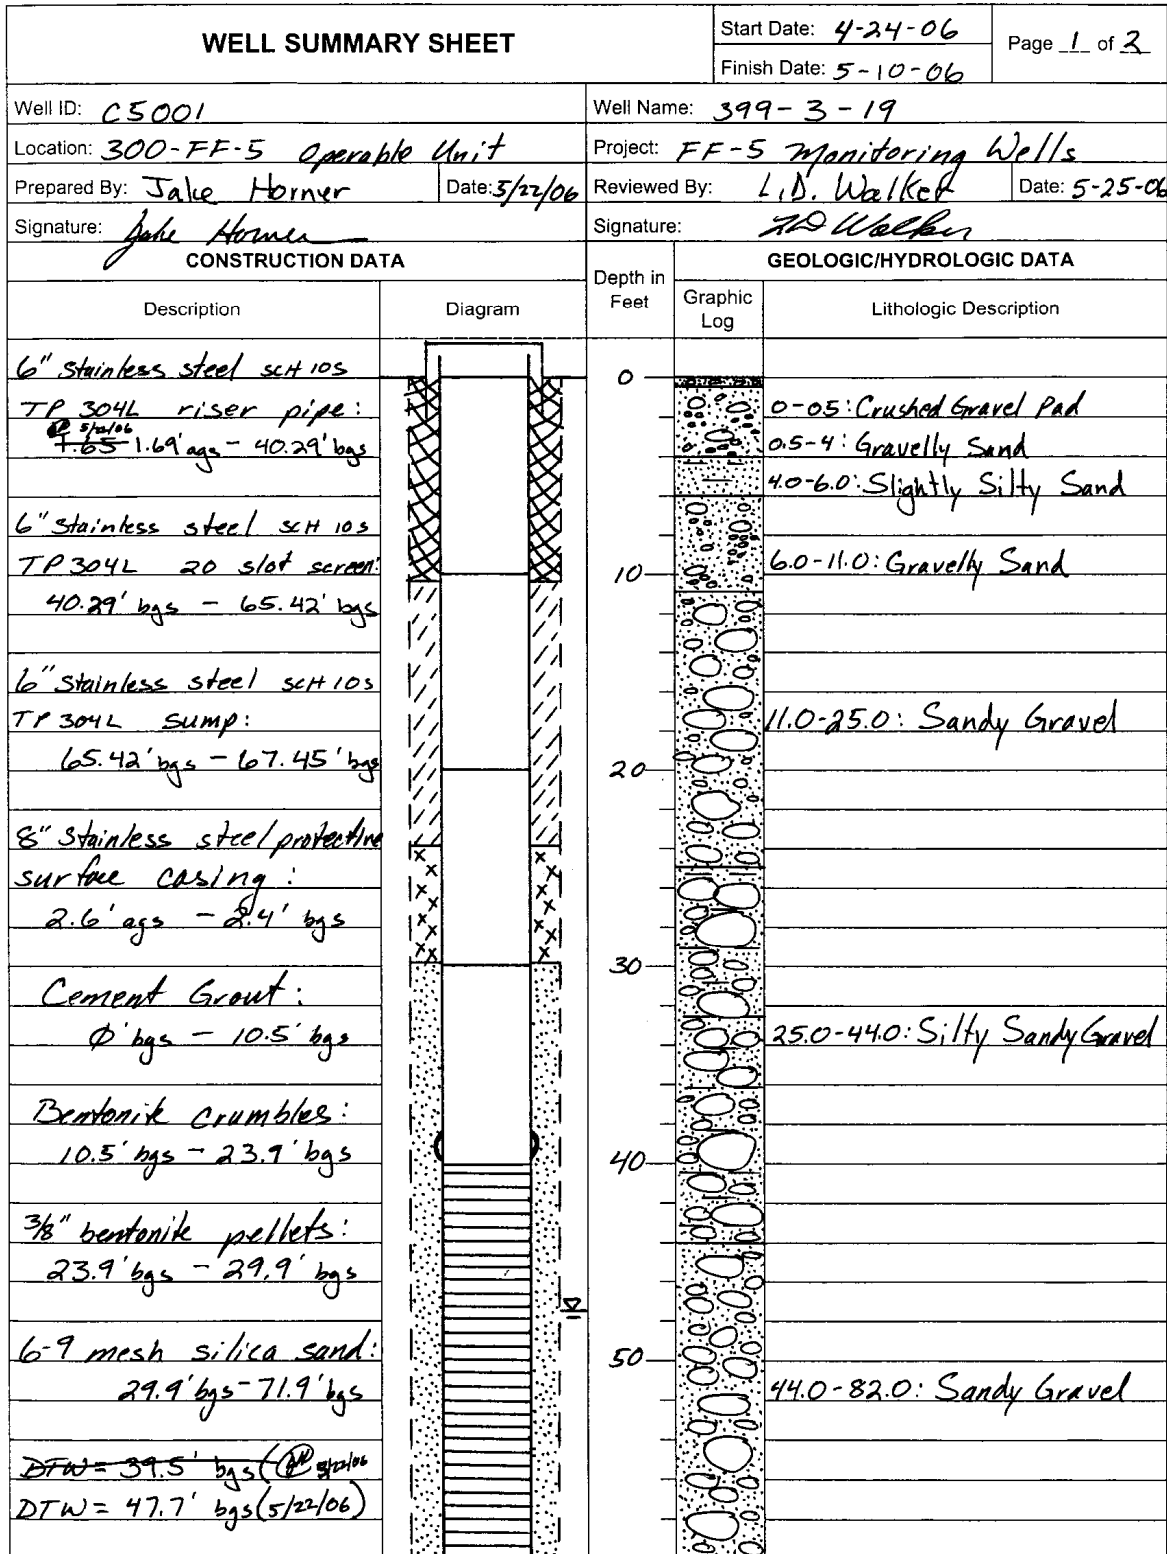 WELL SUMMARY SHEET
Start Date: 4-24-06
Page 1 of 2
Finish Date: 5-10-06
Well ID: C5001
Well Name: 399-3-19
Location: 300-FF-5 Operable Unit
Project: FF-5 Monitoring Wells
Prepared By: Jake Horner
Date: 5/22/06
Reviewed By: L.D. Walker
Date: 5-25-06
Signature: Jake Horner
Signature: LD Walker
CONSTRUCTION DATA
Depth in Feet
GEOLOGIC/HYDROLOGIC DATA
Description
Diagram
Graphic Log
Lithologic Description
6" stainless steel SCH 10S
TP 304L riser pipe:
5/22/06
+.65 1.69' ags - 40.29' bgs
6" stainless steel SCH 10S
TP 304L 20 slot screen:
40.29' bgs - 65.42' bgs
6" stainless steel SCH 10S
TP 304L sump:
65.42' bgs - 67.45' bgs
8" stainless steel protective
surface casing:
2.6' ags - 2.4' bgs
Cement Grout:
Ø' bgs - 10.5' bgs
Bentonite crumbles:
10.5' bgs - 23.9' bgs
3/8" bentonite pellets:
23.9' bgs - 29.9' bgs
6-9 mesh silica sand:
29.9' bgs - 71.9' bgs
DTW = 39.5' bgs ( 5/22/06
DTW = 47.7' bgs (5/22/06)
0
10
20
30
40
50
0-0.5: Crushed Gravel Pad
0.5-4: Gravelly Sand
4.0-6.0: Slightly Silty Sand
6.0-11.0: Gravelly Sand
11.0-25.0: Sandy Gravel
25.0-44.0: Silty Sandy Gravel
44.0-82.0: Sandy Gravel